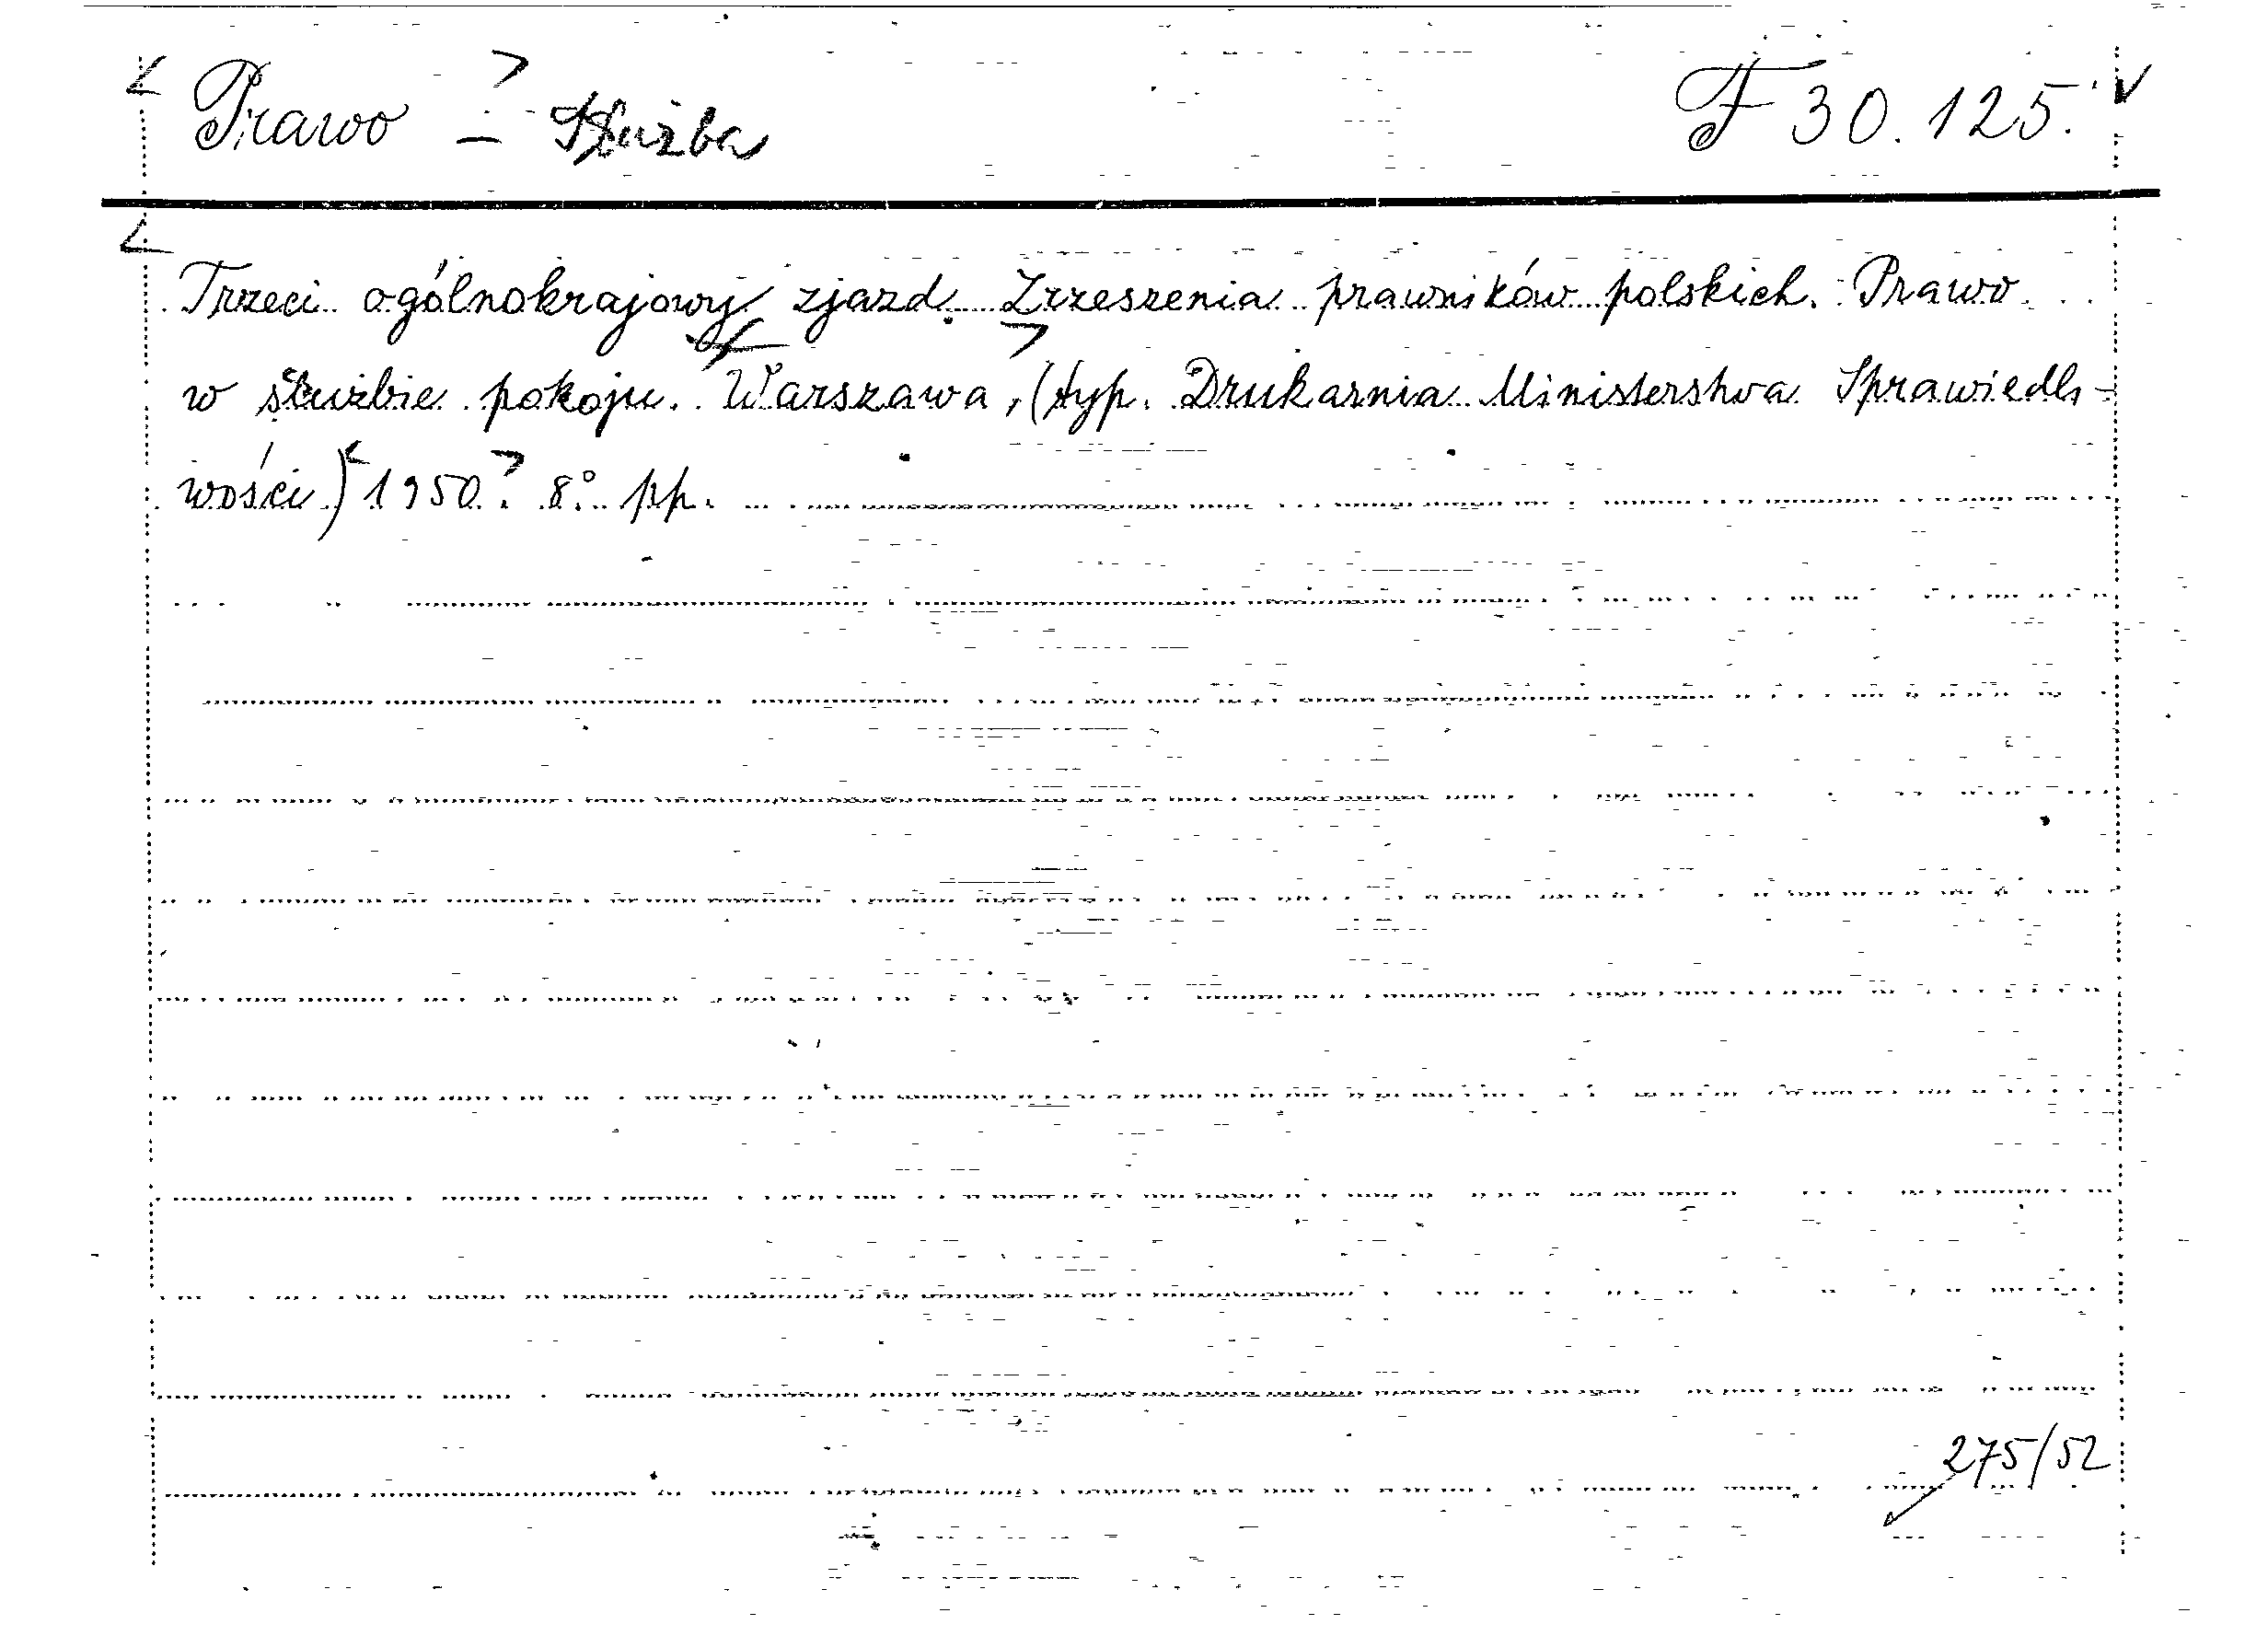 Prawo - Służba F 30.125.
Trzeci ogólnokrajowy zjazd Zrzeszenia prawników polskich. Prawo
w służbie pokoju. Warszawa, (typ. Drukarnia Ministerstwa Sprawiedli-
wości) 1950. 8° pp.
275/52